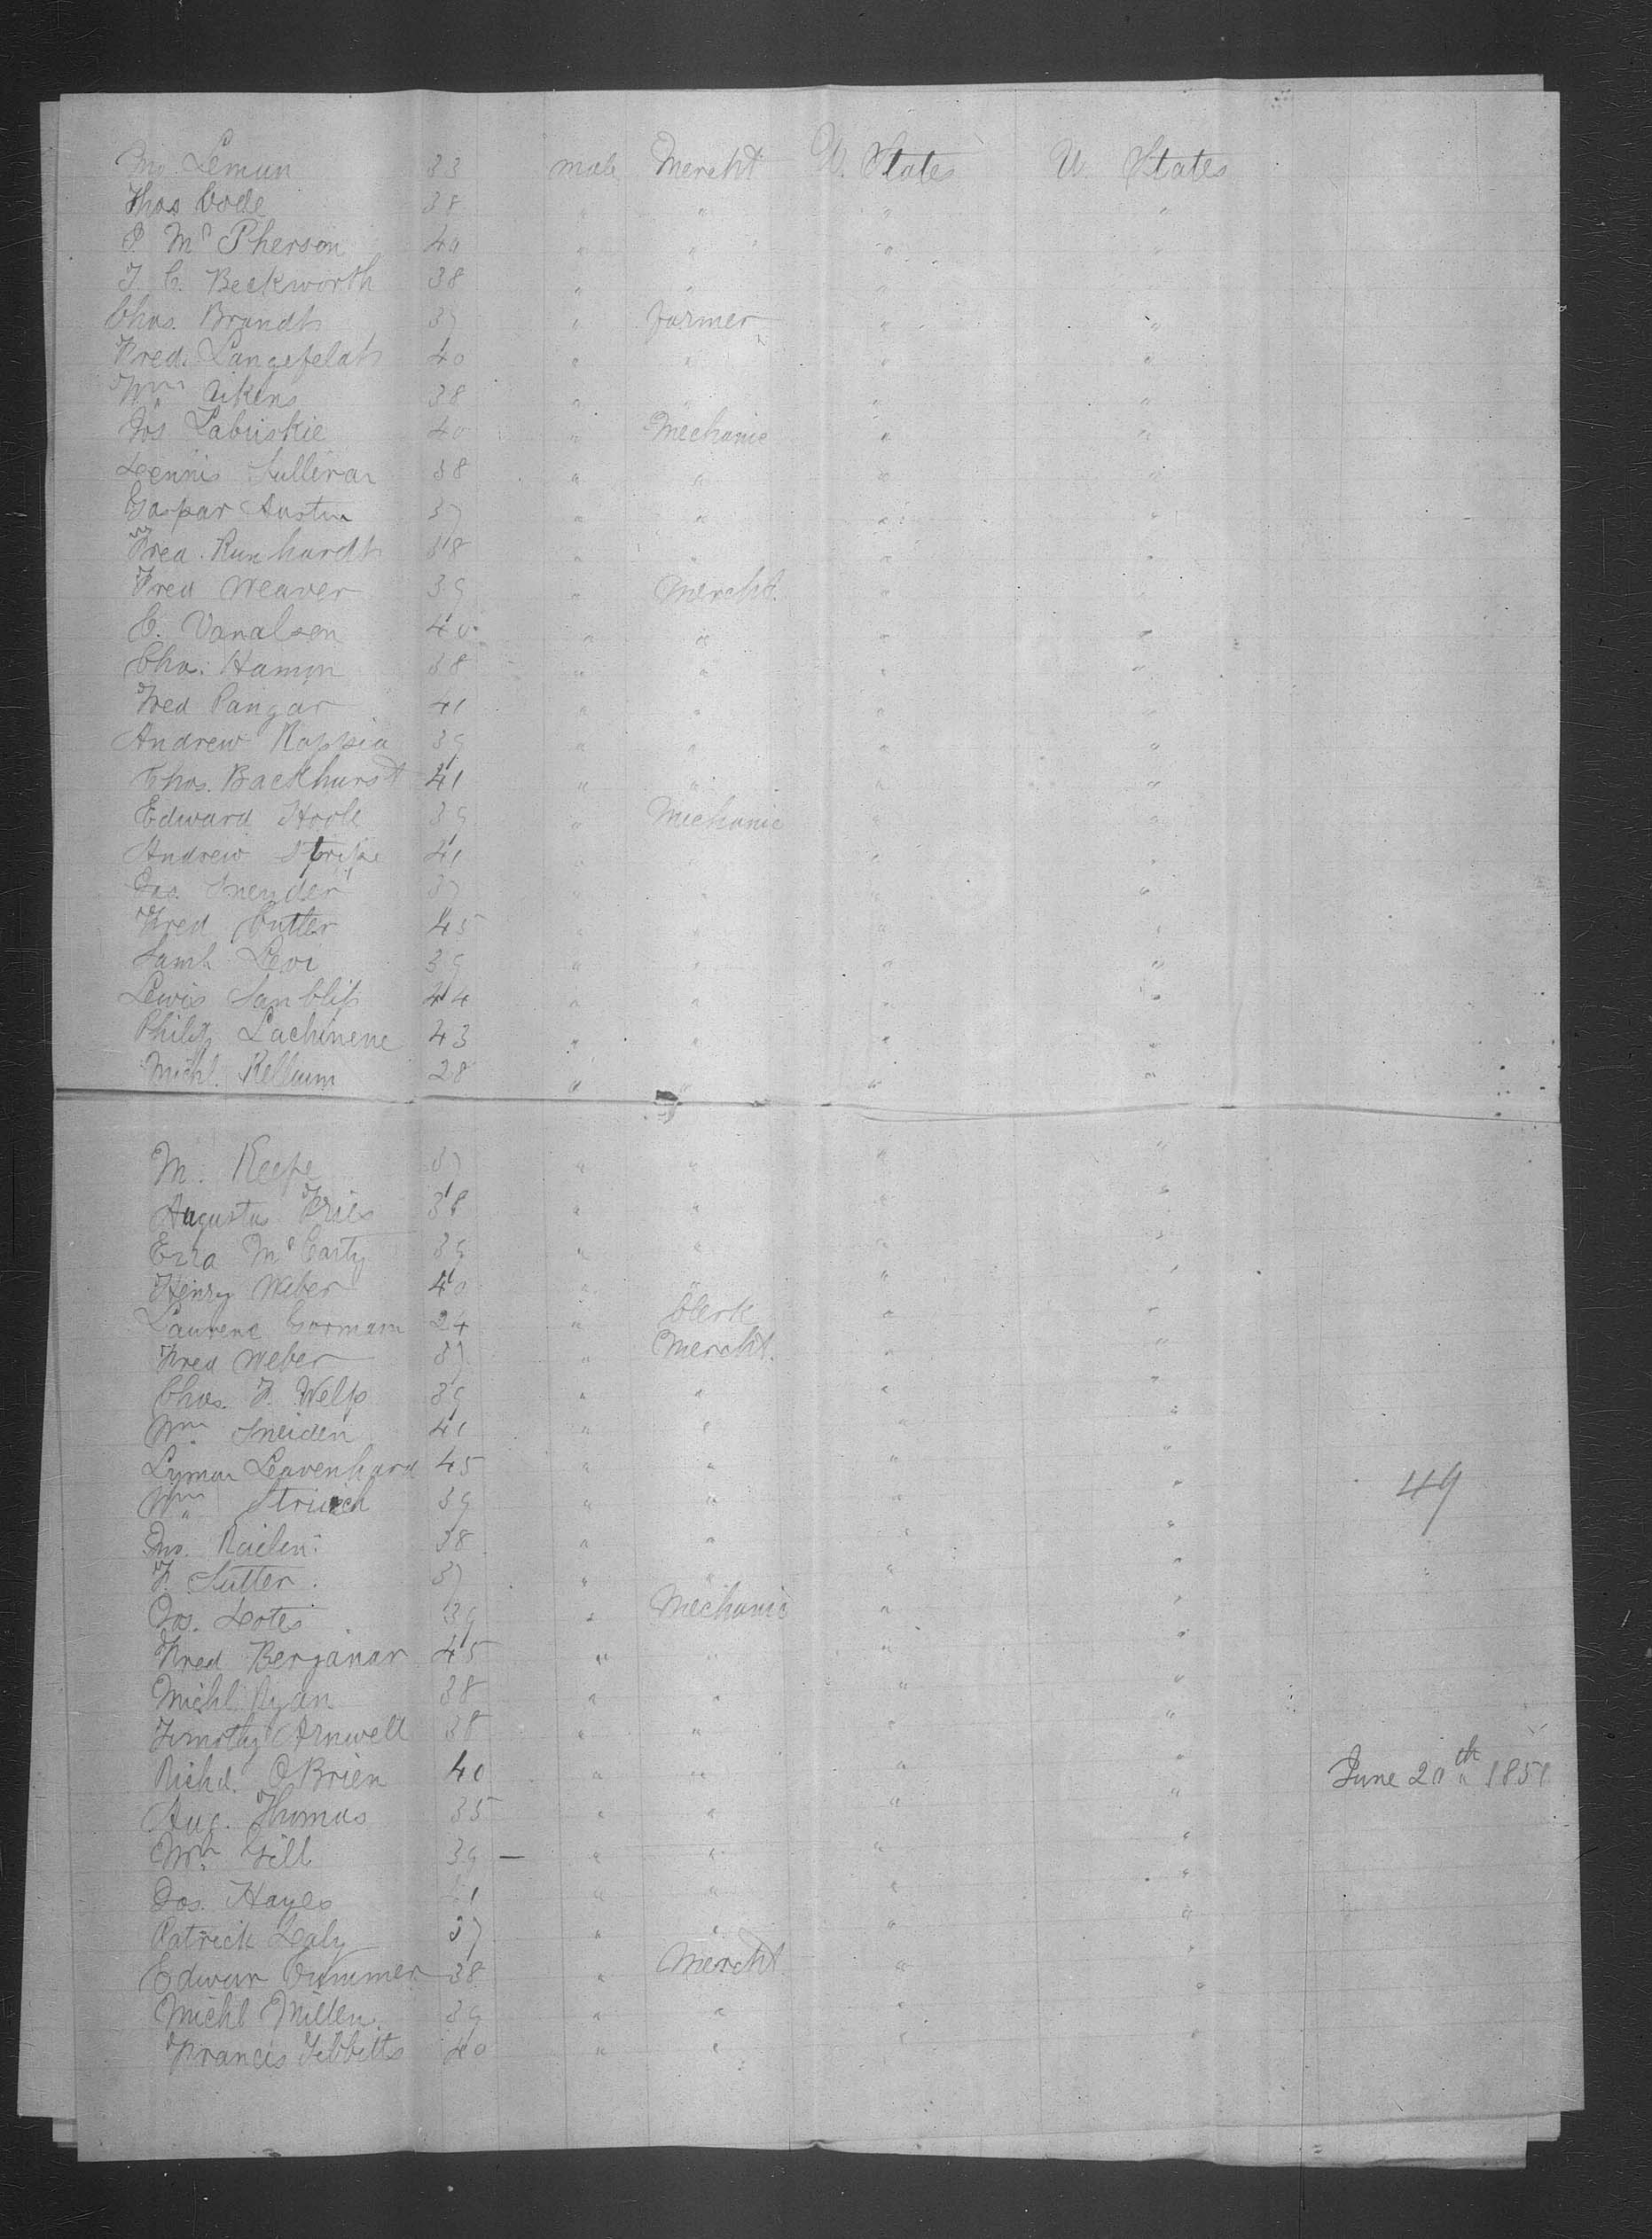 Jno. Leman 33 male Mercht U. States U States
Thos Code 38 " " " "
P. McPherson 40 " " " "
J. C. Beckworth 38 " " "
Chas. Brandt 37 " farmer " "
Fred. Langefeldt 40 " " " "
Wm Aikens 38 " " " "
Jos Labuskie 40 " Mechanic " "
Dennis Sullivan 38 " " " "
Gaspar Austin 37 " " " "
Fred. Runhardt 38 " " " "
Fred Weaver 39 " Mercht. " "
C. Vanalsen 40 " " " "
Chas. Hamm 38 " " " "
Fred Pangar 41 " " " "
Andrew Rappia 39 " " " "
Chos. Backhurst 41 " " " "
Edward Hoole 39 " Mechanic " "
Andrew 41 " " " "
Jas. Sneyder 37 " " " "
Fred Cutter 45 " " " "
Saml Levi 39 " " " "
Lewis 44 " " " "
Philip Lachinene 43 " " " "
Michl. Kellum 28 " " " "
M. Keefe 37 " " " "
Augustus Fries 38 " " " "
Ezra McCarty 39 " " " "
Henry Weber 40 " " " "
Laurene Gormam 24 " Clerk " "
Fred Weber 37 " Mercht. " "
Chas. F. Welp 39 " " " "
Wm Sneiden 41 " " " "
Lyman Leavenhard 45 " " " "
Wm 39 " " " " 49
Jno. 38 " " " "
F. Sutter. 37 " " " "
Jos. Dotes 39 " Mechanic " "
Fred Berganar 45 " " " "
Michl Ryan 38 " " " "
Timothy Arnwell 38 " " " "
Richd. OBrien 40 " " " " June 20th 1851
Aug. Thomas 35 " " " "
Wm Gill 39 – " " " "
Jos. Hayes 41 " " " "
Patrick Daly 37 " " " "
Edwar Cummer 38 " Mercht " "
Michl Millen. 39 " " " "
Francis Tibbetts 40 " " " "